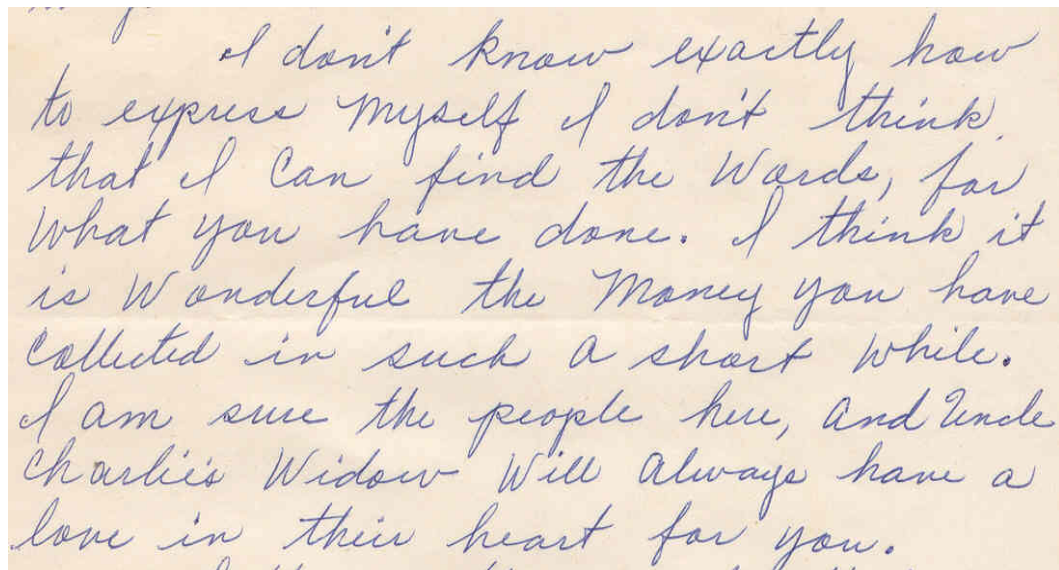 I don't know exactly how
to express Myself I don't think
that I Can find the Words, for
What you have done. I think it
is Wonderful the Money you have
Collected in such a short While.
I am sure the people here, and Uncle
Charlie's Widow Will Always have a
love in their heart for you.